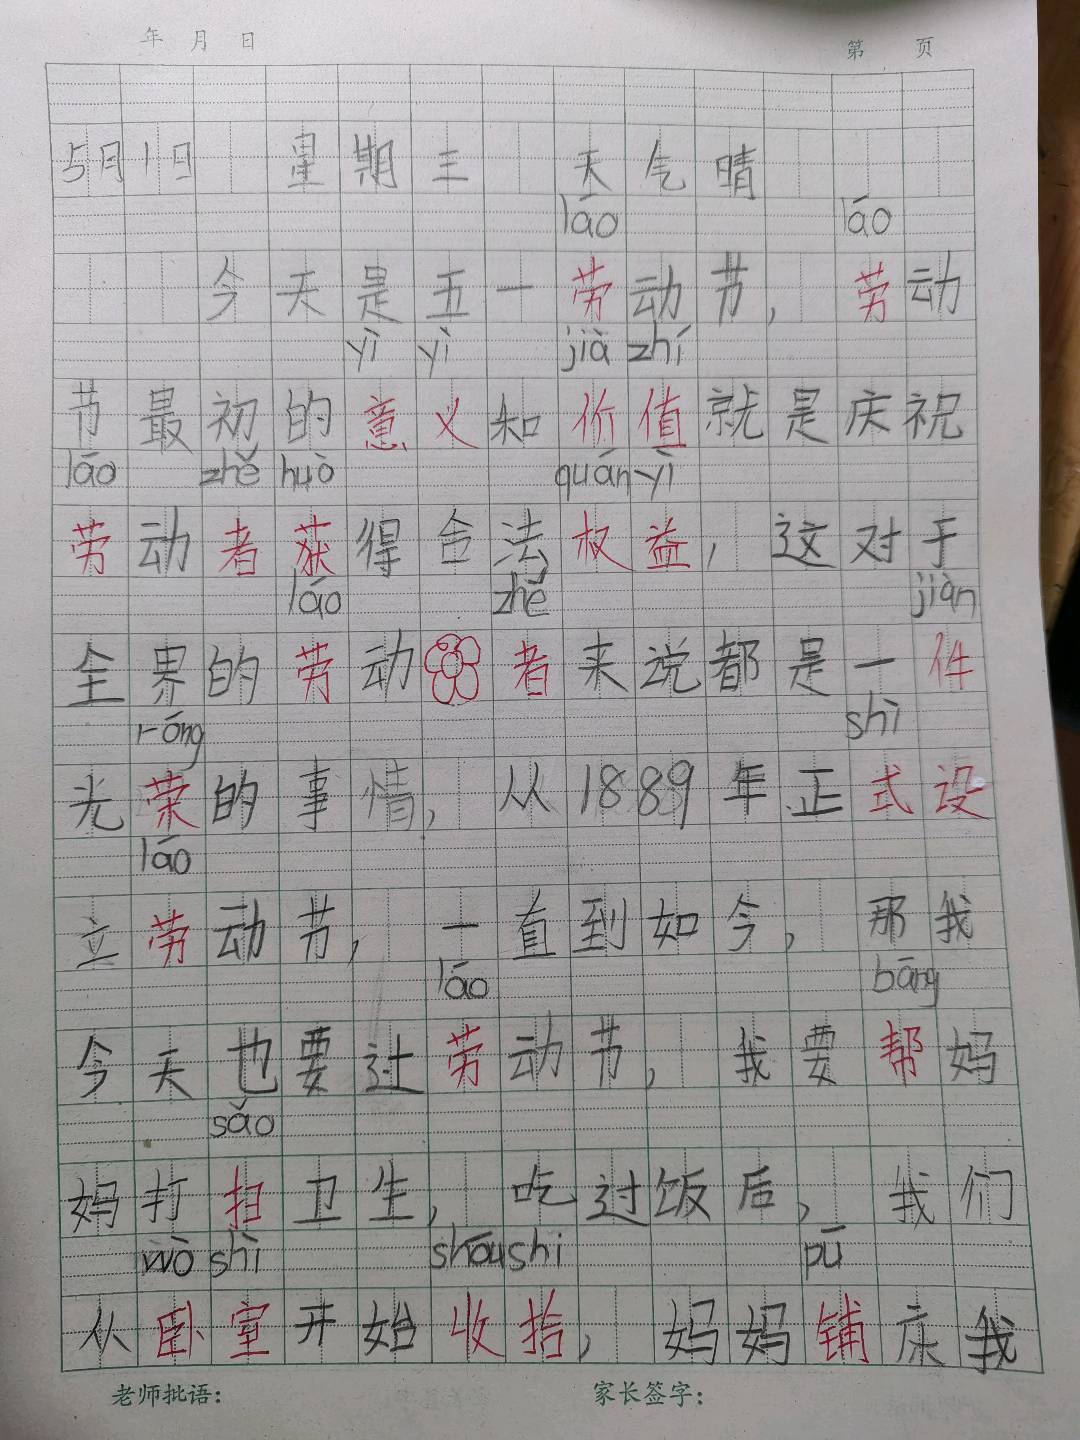 年 月 日 第 页
5月1日 星期三 天气晴
láo láo
今天是五一劳动节，劳动
yì yì jià zhí
节最初的意义和价值就是庆祝
láo zhě huò quán yì
劳动者获得合法权益，这对于
láo zhě jiàn
全界的劳动者来说都是一件
róng shì
光荣的事情，从1889年正式设
láo
立劳动节，一直到如今，那我
láo bāng
今天也要过劳动节，我要帮妈
sǎo
妈打扫卫生，吃过饭后，我们
wò shì shōu shi pū
从卧室开始收拾，妈妈铺床我
老师批语： 家长签字：